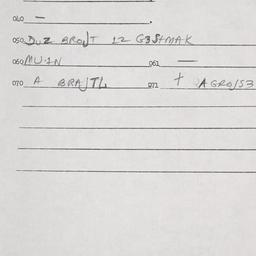 040 —
050 DUZ BROJT 12 G3STMAK
060 MU.1N 061 —
070 A BRAJTL 071 † AGRO/53